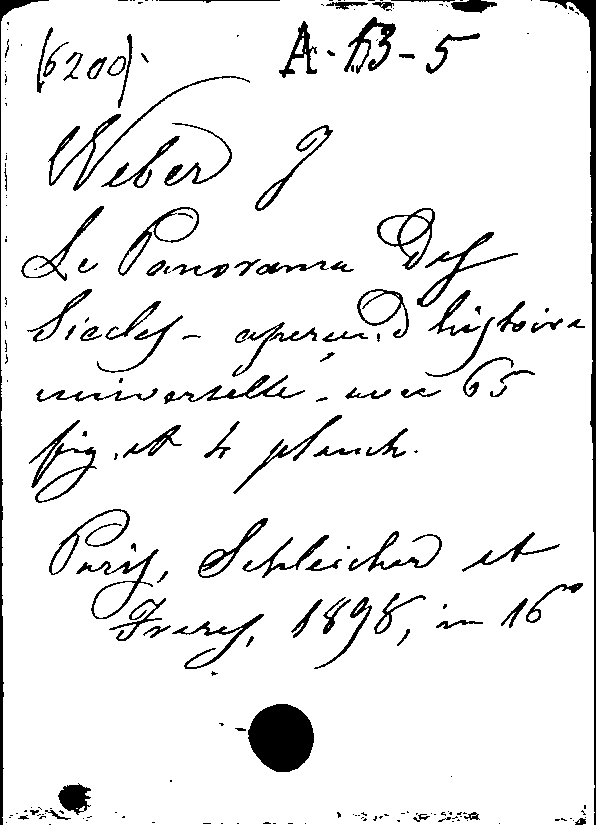 (6200). A-53-5
Weber J
Le Panorama Des
Siecles - aperçu d'histoire
universelle - avec 65
fig. et 4 planch.
Paris, Schleicher et
Freres, 1898, in 16º